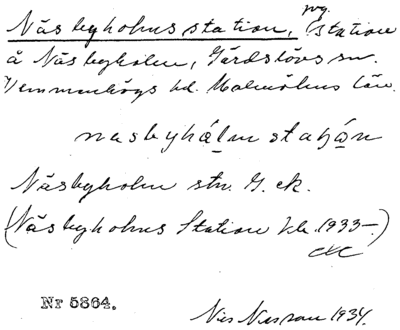 Näsbyholms station, jvg. station
å Näsbyholm, Gärdslövs sn.
Vemmenhögs hd. Malmöhus län.
näsbyhålm staʃɷ̄n
Näsbyholm stn. G. ek.
(Näsbyholms Station kb. 1933–.)
Nr 5864.
Nils 1934.